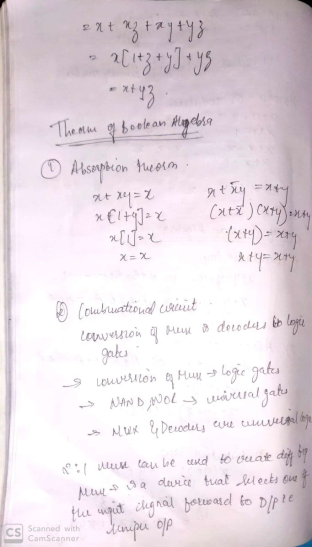 = x + xz + xy + yz
= x[1+z+y] + yz
= x+yz.
Theorm of Boolean Algebra
① Absorption theorem.
x + xy = x
x[1+y] = x
x[1] = x
x = x
x + x̄y = x+y
(x+x̄)(x+y) = x+y
(x+y) = x+y
x+y = x+y
Combinational circuit
conversion of mux & decoders to logic
gates.
→ conversion of Mux → logic gates
→ NAND, NOR → universal gates
→ MUX & Decoders are universal
2ⁿ:1 mux can be used to create
Mux → is a device that selects one of
the input signal forward to O/P
O/P
CS Scanned with
CamScanner